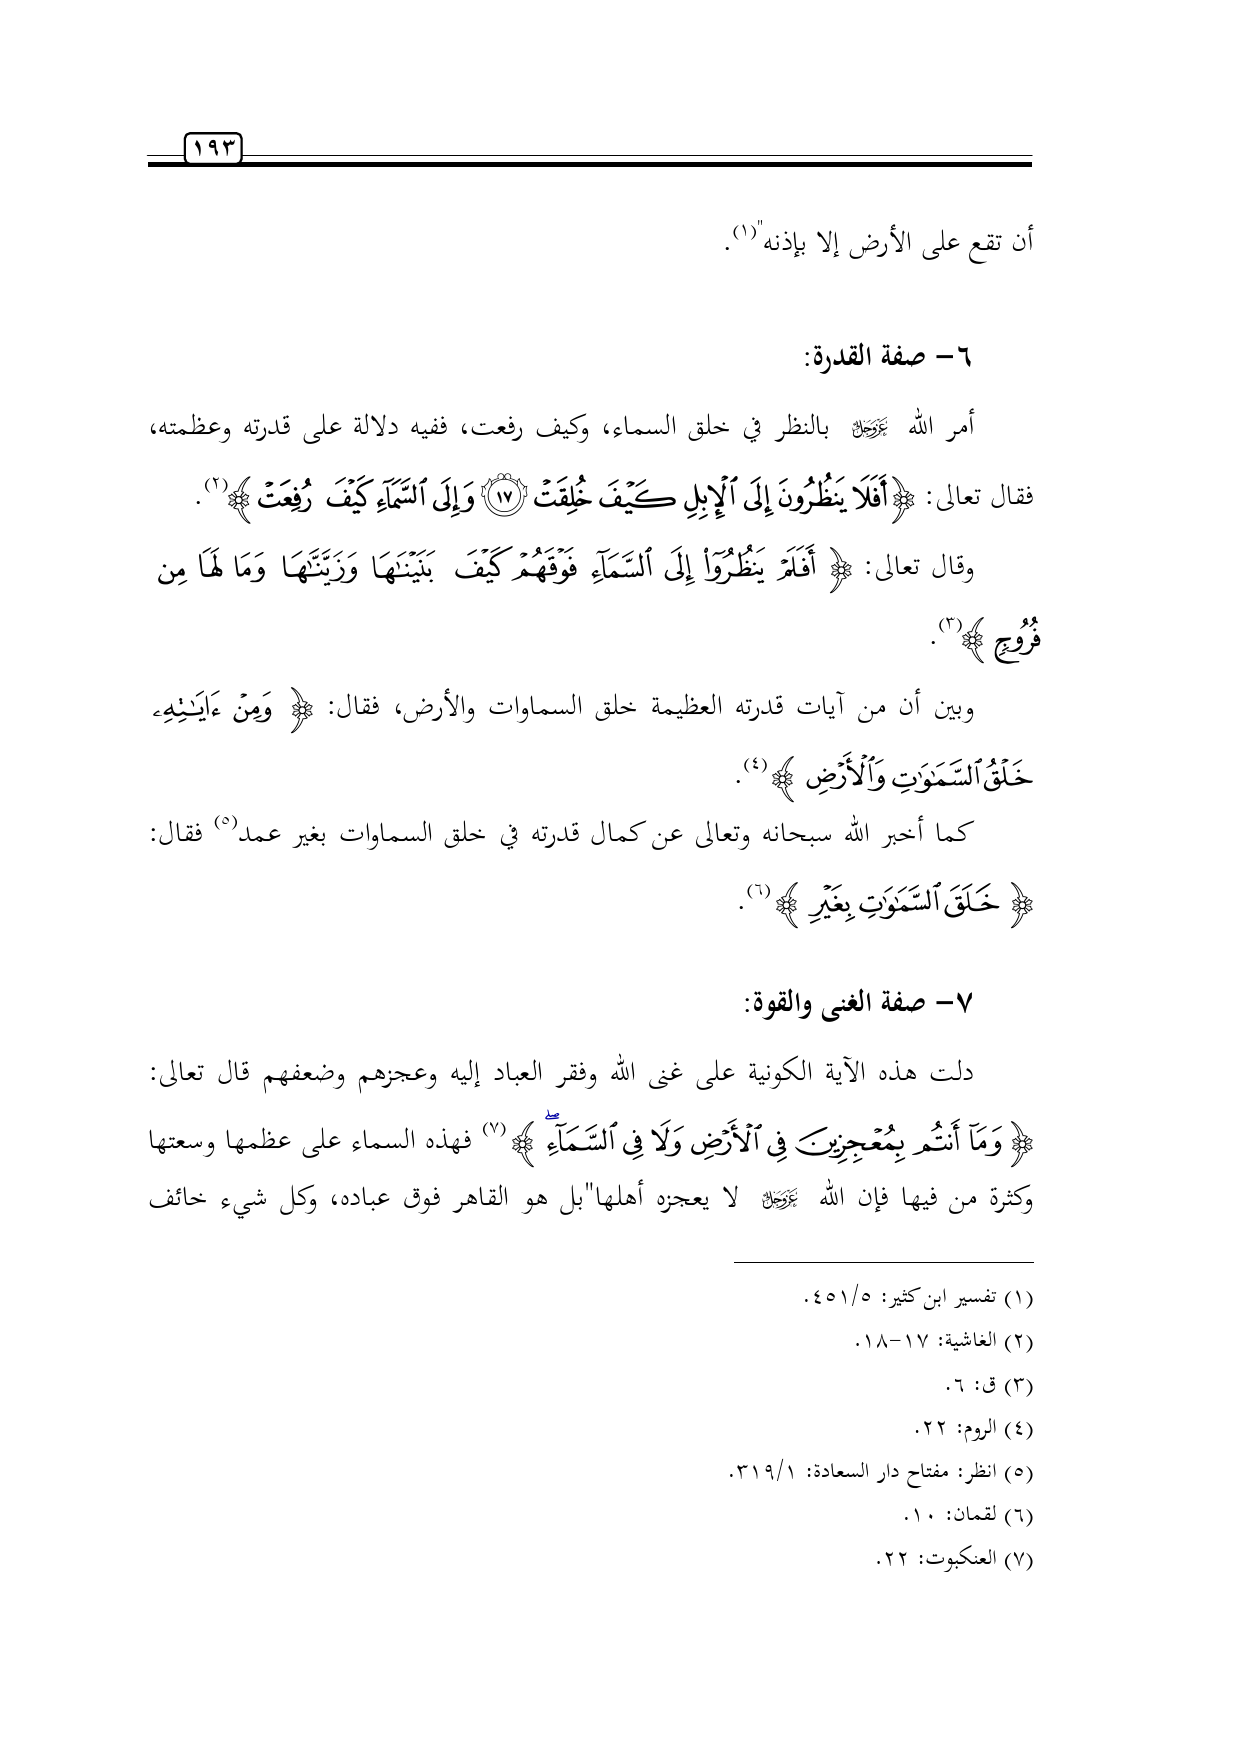 ١٩٣
أن تقع على الأرض إلا بإذنه"(١).
٦– صفة القدرة:
أمر الله ﷿ بالنظر في خلق السماء، وكيف رفعت، ففيه دلالة على قدرته وعظمته،
فقال تعالى: ﴿أَفَلَا يَنظُرُونَ إِلَى ٱلْإِبِلِ كَيْفَ خُلِقَتْ ۝١٧ وَإِلَى ٱلسَّمَآءِ كَيْفَ رُفِعَتْ﴾(٢).
وقال تعالى: ﴿ أَفَلَمْ يَنظُرُوٓا۟ إِلَى ٱلسَّمَآءِ فَوْقَهُمْ كَيْفَ بَنَيْنَـٰهَا وَزَيَّنَّـٰهَا وَمَا لَهَا مِن
فُرُوجٍ ﴾(٣).
وبين أن من آيات قدرته العظيمة خلق السماوات والأرض، فقال: ﴿ وَمِنْ ءَايَـٰتِهِۦ
خَلْقُ ٱلسَّمَـٰوَٰتِ وَٱلْأَرْضِ ﴾(٤).
كما أخبر الله سبحانه وتعالى عن كمال قدرته في خلق السماوات بغير عمد(٥) فقال:
﴿ خَلَقَ ٱلسَّمَـٰوَٰتِ بِغَيْرِ ﴾(٦).
٧– صفة الغنى والقوة:
دلت هذه الآية الكونية على غنى الله وفقر العباد إليه وعجزهم وضعفهم قال تعالى:
﴿ وَمَآ أَنتُم بِمُعْجِزِينَ فِى ٱلْأَرْضِ وَلَا فِى ٱلسَّمَآءِ ۖ ﴾(٧) فهذه السماء على عظمها وسعتها
وكثرة من فيها فإن الله ﷿ لا يعجزه أهلها"بل هو القاهر فوق عباده، وكل شيء خائف
(١) تفسير ابن كثير: ٤٥١/٥.
(٢) الغاشية: ١٧–١٨.
(٣) ق: ٦.
(٤) الروم: ٢٢.
(٥) انظر: مفتاح دار السعادة: ٣١٩/١.
(٦) لقمان: ١٠.
(٧) العنكبوت: ٢٢.